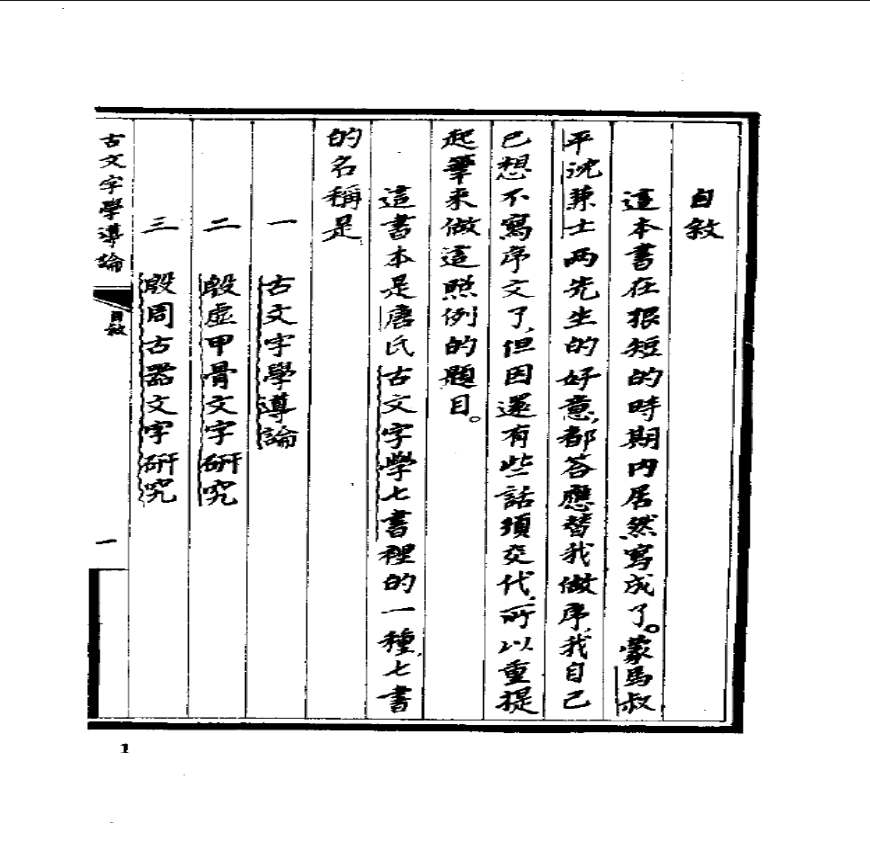 自敘
這本書在很短的時期内居然寫成了。蒙馬叔
平沈兼士两先生的好意，都答應替我做序，我自己
已想不寫序文了，但因還有些話須交代，所以重提
起筆来做這照例的題目。
這書本是唐氏古文字學七書裡的一種，七書
的名稱是
一 古文字學導論
二 殷虚甲骨文字研究
三 殷周古器文字研究
古文字學導論 自敘 一
1